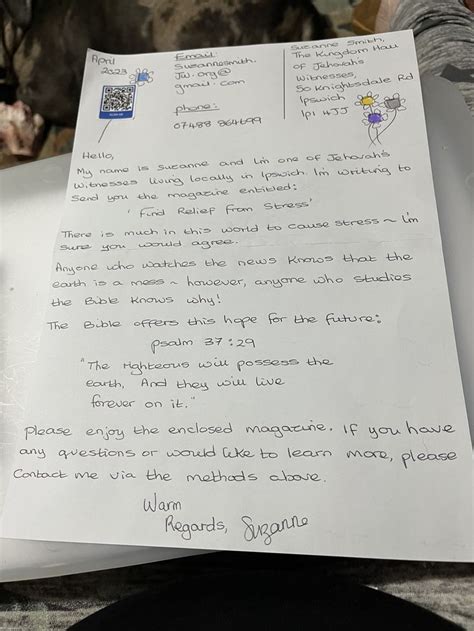 April
2023
Email:
Suzannesmith.
Jw.org@
gmail.com
phone:
07488 864699
Suzanne Smith,
The Kingdom Hall
of Jehovah's
Witnesses,
50 Knightsdale Rd
Ipswich
IP1 4JJ
Hello,
My name is Suzanne and I'm one of Jehovah's
Witnesses living locally in Ipswich. I'm writing to
send you the magazine entitled:
'Find Relief from Stress'
There is much in this world to cause stress ~ I'm
sure you would agree.
Anyone who watches the news knows that the
earth is a mess ~ however, anyone who studies
the Bible knows why!
The Bible offers this hope for the future:
Psalm 37:29
"The righteous will possess the
earth, And they will live
forever on it."
Please enjoy the enclosed magazine. If you have
any questions or would like to learn more, please
contact me via the methods above.
Warm
Regards, Suzanne